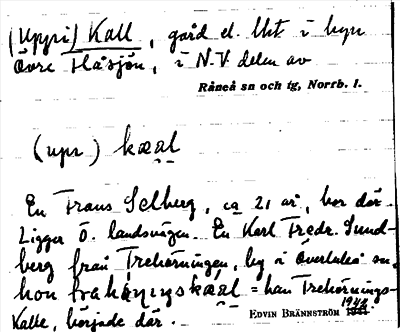 (Uppi) Kall, gård el. lht i byn
Övre Flåsjön, i N.V. delen av
Råneå sn och tg, Norrb. l.
(upi) kæal
En Frans Selberg, ca 21 år, bor där.
Ligger Ö. landsvägen. En Karl Fredr. Sund-
berg från Trehörningen, by i Överluleå sn,
hon trahönıŋskæal = han Trehörnings-
Kalle, började där.
EDVIN BRÄNNSTRÖM 1942